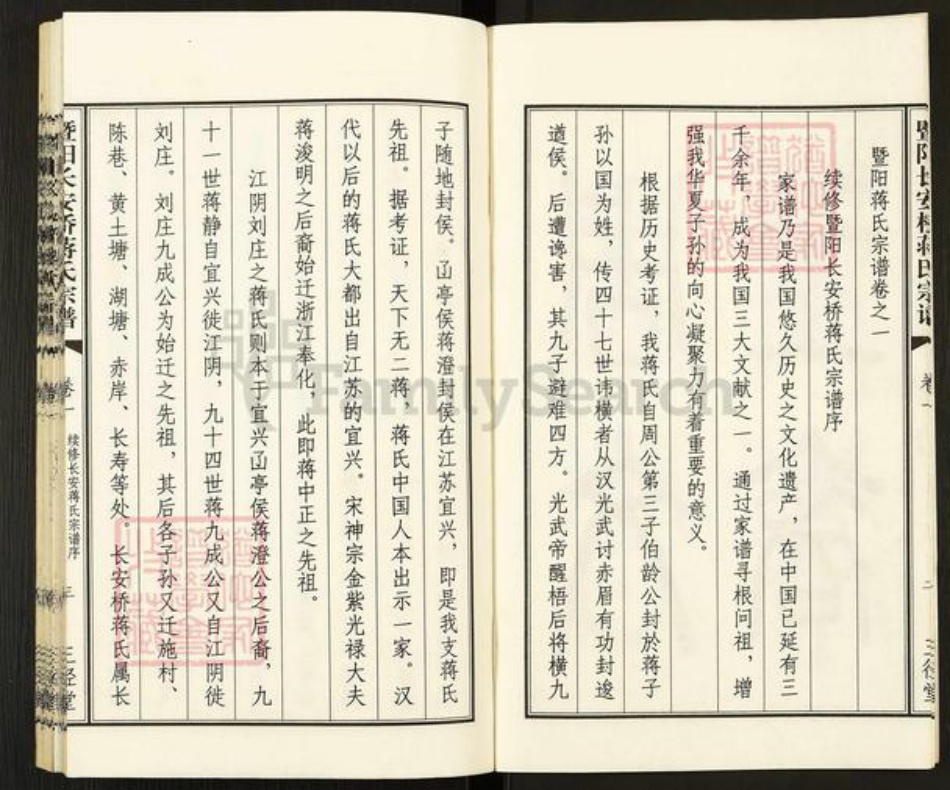 暨阳蒋氏宗谱卷之一
续修暨阳长安桥蒋氏宗谱序
家谱乃是我国悠久历史之文化遗产，在中国已延有三
千余年，成为我国三大文献之一。通过家谱寻根问祖，增
强我华夏子孙的向心凝聚力有着重要的意义。
根据历史考证，我蒋氏自周公第三子伯龄公封於蒋子
孙以国为姓，传四十七世讳横者从汉光武讨赤眉有功封逡
遒侯。后遭谗害，其九子避难四方。光武帝醒梧后将横九
子随地封侯。函亭侯蒋澄封侯在江苏宜兴，即是我支蒋氏
先祖。据考证，天下无二蒋，蒋氏中国人本出示一家。汉
代以后的蒋氏大都出自江苏的宜兴。宋神宗金紫光禄大夫
蒋浚明之后裔始迁浙江奉化，此即蒋中正之先祖。
江阴刘庄之蒋氏则本于宜兴函亭侯蒋澄公之后裔，九
十一世蒋静自宜兴徙江阴，九十四世蒋九成公又自江阴徙
刘庄。刘庄九成公为始迁之先祖，其后各子孙又迁施村、
陈巷、黄土塘、湖塘、赤岸、长寿等处。长安桥蒋氏属长
暨阳长安桥蒋氏宗谱
卷一
续修长安蒋氏宗谱序
三
三径堂
暨阳长安桥蒋氏宗谱
卷一
二
三径堂
FamilySearch